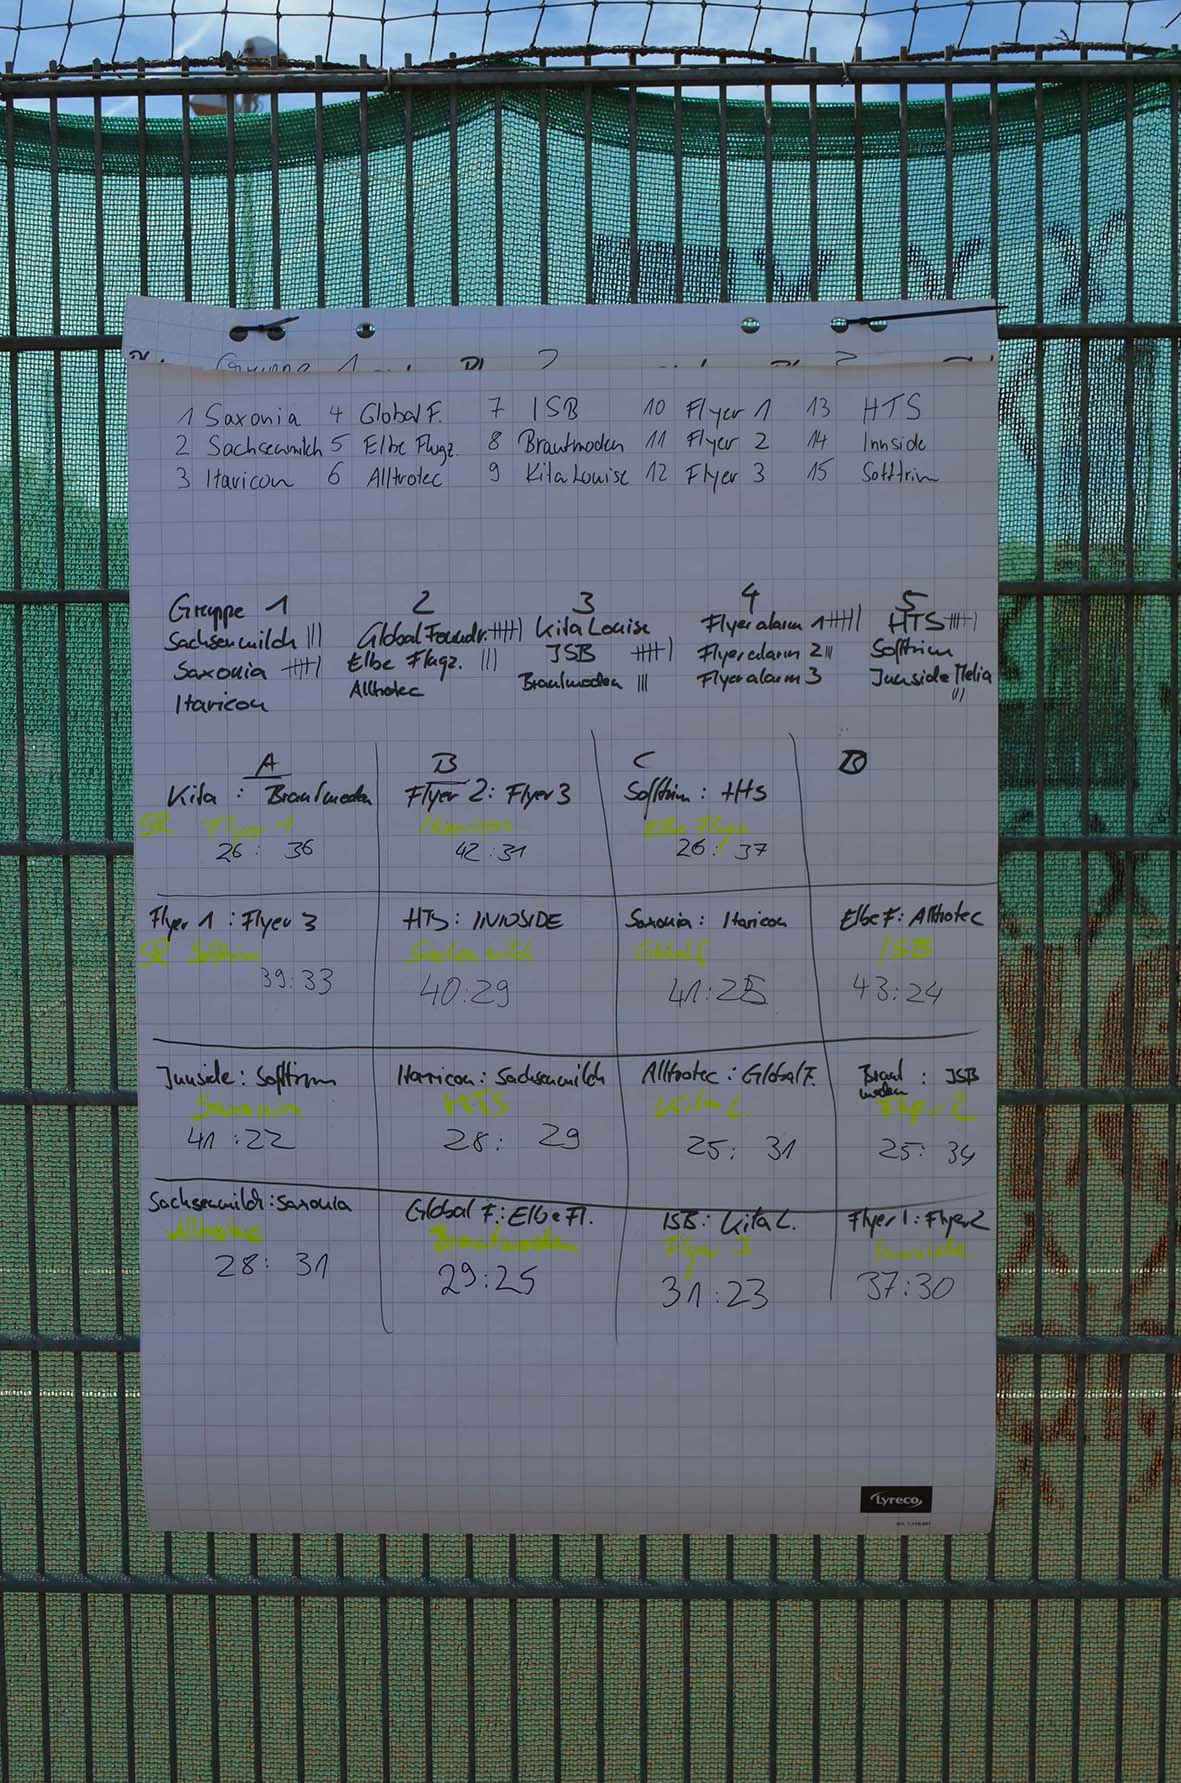 Gruppe 1 2
1 Saxonia 4 Global F. 7 ISB 10 Flyer 1 13 HTS
2 Sachsenmilch 5 Elbe Flugz. 8 Brautmoden 11 Flyer 2 14 Innside
3 Itaricon 6 Alltrotec 9 Kita Louise 12 Flyer 3 15 Softtrim
Gruppe 1 2 3 4 5
Sachsenmilch ||| Global Foundr. |||||| Kita Louise Flyeralarm 1 |||||| HTS ||||||
Saxonia |||||| Elbe Flugz. ||| ISB |||||| Flyeralarm 2 ||| Softtrim
Itaricon Alltrotec Brautmoden ||| Flyeralarm 3 Innside Melia |||
A B C D
Kita : Brautmoden Flyer 2 : Flyer 3 Softtrim : HTS
SR Flyer 1 Itaricon Elbe Flugz
26 : 36 42 : 31 26 : 37
Flyer 1 : Flyer 3 HTS : INNSIDE Saxonia : Itaricon Elbe F : Alltrotec
SR Softtrim Sachsenmilch Global F ISB
39 : 33 40 : 29 41 : 25 43 : 24
Innside : Softtrim Itaricon : Sachsenmilch Alltrotec : Global F. Brautmoden : ISB
Saxonia HTS Kita L. Flyer 2
41 : 22 28 : 29 25 : 31 25 : 34
Sachsenmilch : Saxonia Global F. : Elbe Fl. ISB : Kita L. Flyer 1 : Flyer 2
Alltrotec Brautmoden Flyer 3 Innside
28 : 31 29 : 25 31 : 23 37 : 30
Lyreco